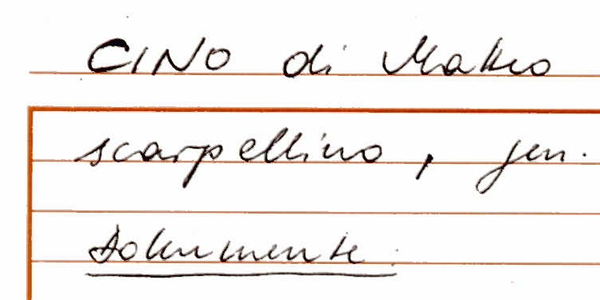 CINO di Matteo
scarpellino, sen.
Dokumente: